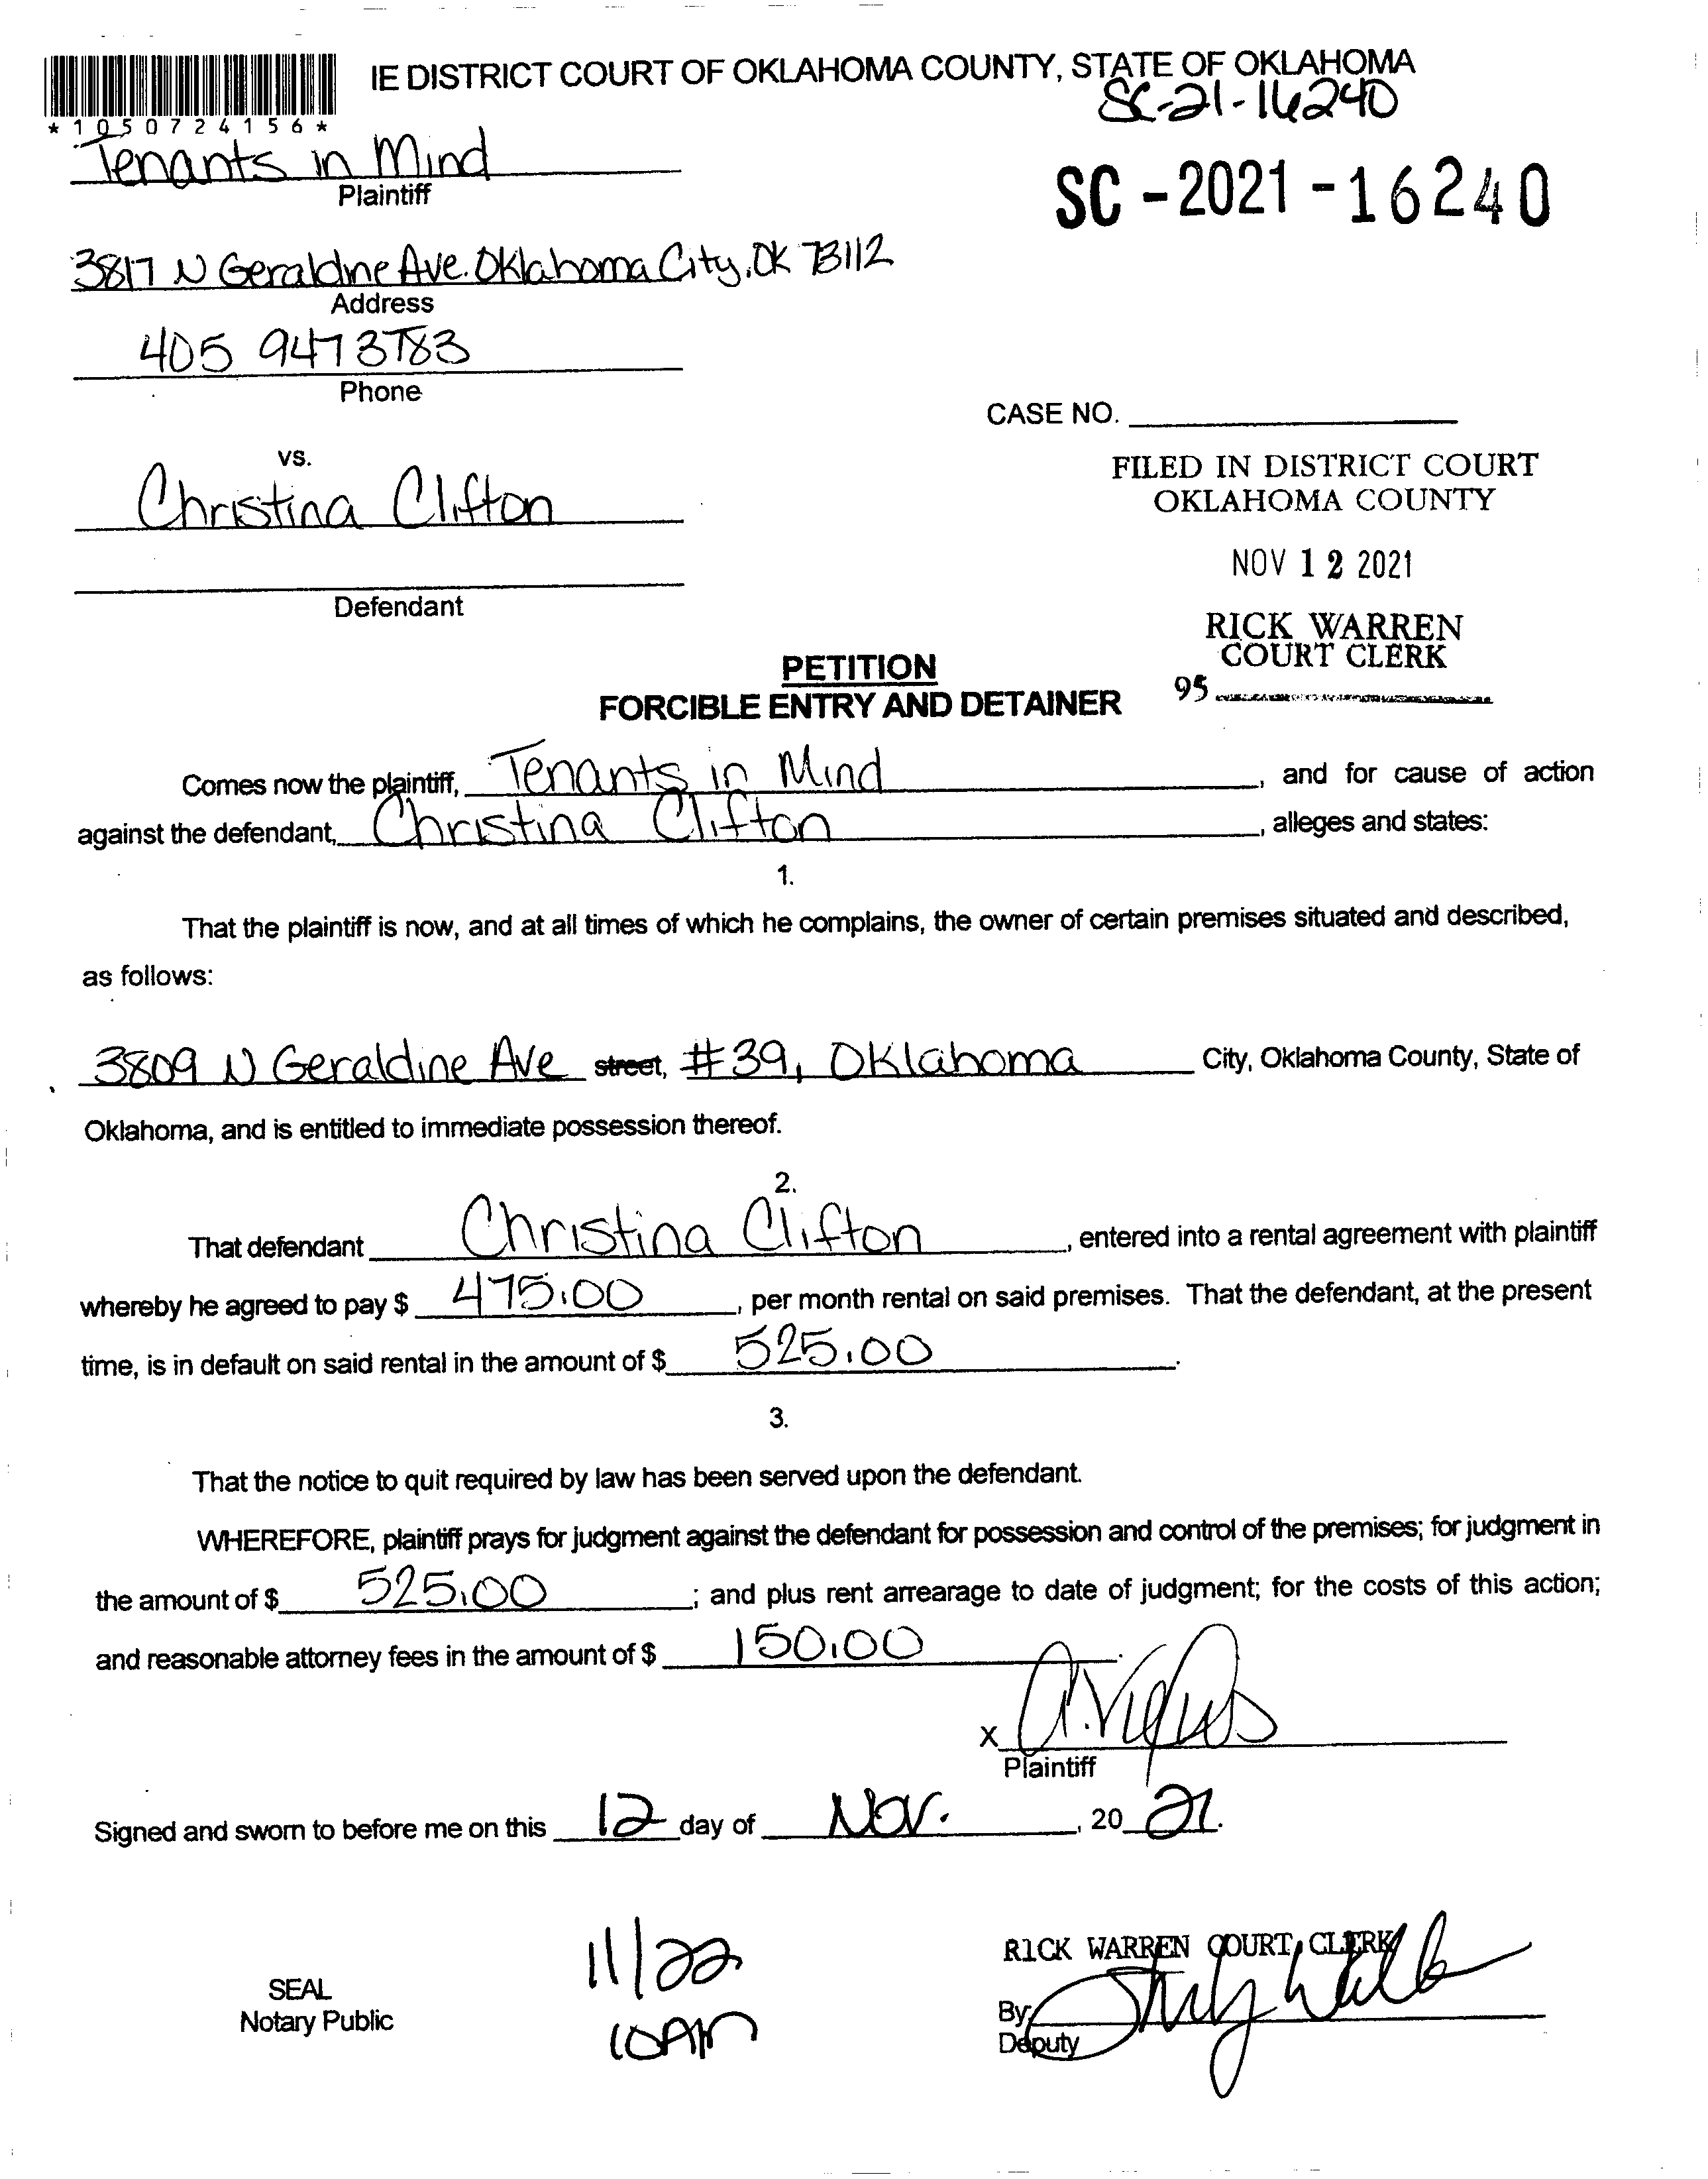 IE DISTRICT COURT OF OKLAHOMA COUNTY, STATE OF OKLAHOMA
SC-21-16240
*1050724156*
Tenants in Mind
Plaintiff
SC-2021-16240
3817 N Geraldine Ave. Oklahoma City, OK 73112
Address
405 947 3783
Phone
CASE NO.
vs.
FILED IN DISTRICT COURT
OKLAHOMA COUNTY
Christina Clifton
NOV 12 2021
Defendant
RICK WARREN
COURT CLERK
95
PETITION
FORCIBLE ENTRY AND DETAINER
Comes now the plaintiff, Tenants in Mind, and for cause of action
against the defendant, Christina Clifton, alleges and states:
1.
That the plaintiff is now, and at all times of which he complains, the owner of certain premises situated and described,
as follows:
3809 N Geraldine Ave street, #39, Oklahoma City, Oklahoma County, State of
Oklahoma, and is entitled to immediate possession thereof.
2.
That defendant Christina Clifton, entered into a rental agreement with plaintiff
whereby he agreed to pay $ 475.00, per month rental on said premises. That the defendant, at the present
time, is in default on said rental in the amount of $ 525.00.
3.
That the notice to quit required by law has been served upon the defendant.
WHEREFORE, plaintiff prays for judgment against the defendant for possession and control of the premises; for judgment in
the amount of $ 525.00; and plus rent arrearage to date of judgment; for the costs of this action;
and reasonable attorney fees in the amount of $ 150.00.
X
Plaintiff
Signed and sworn to before me on this 12 day of Nov., 20 21.
11/22
10AM
SEAL
Notary Public
RICK WARREN COURT CLERK
By:
Deputy